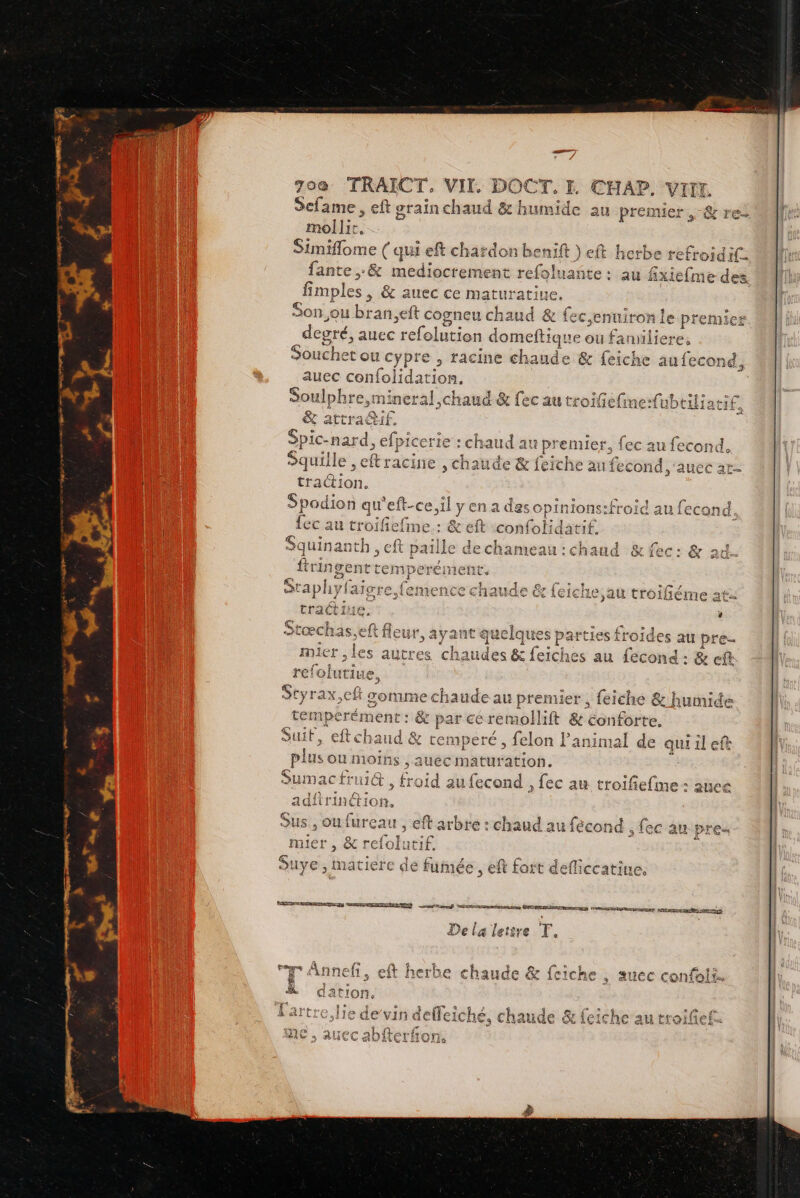 700 TRAICT. VII. DOCT. I. CHAP. VIII.
Seſame, eſt grain chaud & humide au premier, & re-
mollit.
Simiſſome (qui eſt chardon beniſt) eſt herbe refroidiſ-
ſante, & mediocrement reſoluante: au ſixieſme des
ſimples, & auec ce maturatiue.
Son, ou bran, eſt cogneu chaud & ſec, enuiron le premier
degré, auec reſolution domeſtique ou familiere.
Souchet ou cypre, racine chaude & ſeiche au ſecond,
auec conſolidation.
Soulphre, mineral, chaud & ſec au troiſieſme: ſubtiliatif,
& attractif.
Spic-nard, eſpicerie: chaud au premier, ſec au ſecond.
Squille, eſt racine, chaude & ſeiche au ſecond, auec at-
traction.
Spodion qu'eſt-ce, il y en a des opinions: froid au ſecond,
ſec au troiſieſme: & eſt conſolidatif.
Squinanth, eſt paille de chameau: chaud & ſec: & ad-
ſtringent temperément.
Staphyſaigre, ſemence chaude & ſeiche, au troiſiéme at-
tractiue.
Stœchas, eſt fleur, ayant quelques parties froides au pre-
mier, les autres chaudes & ſeiches au ſecond: & eſt
reſolutiue,
Styrax, eſt gomme chaude au premier, ſeiche & humide
temperément: & par ce remolliſt & conforte.
Suif, eſt chaud & temperé, ſelon l'animal de qui il eſt
plus ou moins, auec maturation.
Sumac fruict, froid au ſecond, ſec au troiſieſme: auec
adſtrinction.
Sus, ou ſureau, eſt arbre: chaud au ſécond, ſec au pre-
mier, & reſolutif.
Suye, matiere de fumée, eſt fort deſſiccatiue.
De la lettre T.
T Anneſi, eſt herbe chaude & ſeiche, auec conſoli-
dation.
Tartre, lie de vin deſſeiché, chaude & ſeiche au troiſieſ-
me, auec abſterſion.